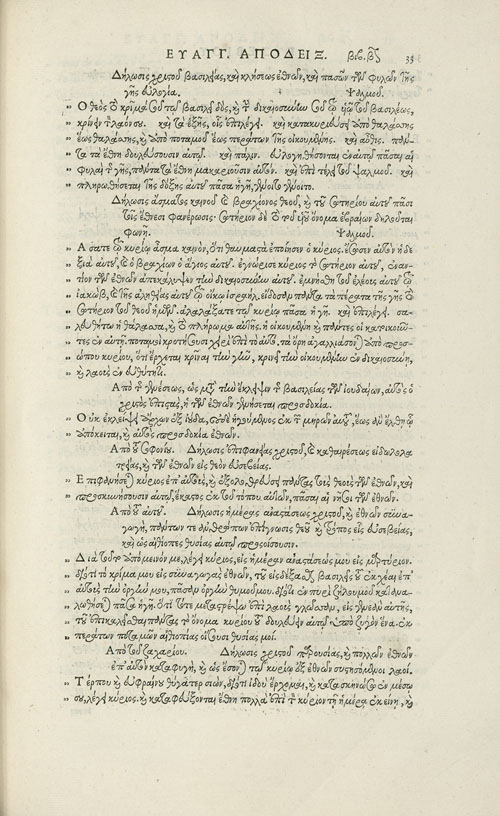 ΕΥΑΓΓ. ΑΠΟΔΕΙΞ. βιβ. β 33
Δήλωσις χριστοῦ βασιλείας, καὶ κλήσεως ἐθνῶν, καὶ πασῶν τῶν φυλῶν τῆς
γῆς εὐλογία. Ψαλμοῦ.
„ Ὁ θεὸς τὸ κρίμα σου τῷ βασιλεῖ δὸς, καὶ τὴν δικαιοσύνην σου τῷ υἱῷ τοῦ βασιλέως,
„ κρίνειν τὸν λαόν σου. καὶ τὰ ἑξῆς, οἷς ἐπιλέγει. καὶ κατακυριεύσει ἀπὸ θαλάσσης
„ ἕως θαλάσσης, καὶ ἀπὸ ποταμοῦ ἕως περάτων τῆς οἰκουμένης. καὶ αὖθις. πάν-
„ τα τὰ ἔθνη δουλεύσουσιν αὐτῷ. καὶ πάλιν. εὐλογηθήσονται ἐν αὐτῷ πᾶσαι αἱ
„ φυλαὶ τῆς γῆς, πάντα τὰ ἔθνη μακαριοῦσιν αὐτόν. καὶ ἐπὶ τέλει τοῦ ψαλμοῦ. καὶ
„ πληρωθήσεται τῆς δόξης αὐτοῦ πᾶσα ἡ γῆ, γένοιτο γένοιτο.
Δήλωσις ᾄσματος καινοῦ καὶ βραχίονος θεοῦ, καὶ τοῦ σωτηρίου αὐτοῦ πᾶσι
τοῖς ἔθνεσι φανέρωσις. σωτήριον δὲ τὸ τοῦ ἰησοῦ ὄνομα ἑβραίων δηλοῦται
φωνῇ. Ψαλμοῦ.
„ Ἄσατε τῷ κυρίῳ ᾆσμα καινὸν, ὅτι θαυμαστὰ ἐποίησεν ὁ κύριος. ἔσωσεν αὐτὸν ἡ δε-
„ ξιὰ αὐτοῦ, καὶ ὁ βραχίων ὁ ἅγιος αὐτοῦ. ἐγνώρισε κύριος τὸ σωτήριον αὐτοῦ, ἐναν-
„ τίον τῶν ἐθνῶν ἀπεκάλυψεν τὴν δικαιοσύνην αὐτοῦ. ἐμνήσθη τοῦ ἐλέους αὐτοῦ τῷ
„ ἰακὼβ, καὶ τῆς ἀληθείας αὐτοῦ τῷ οἴκῳ ἰσραήλ. εἴδοσαν πάντα τὰ πέρατα τῆς γῆς τὸ
„ σωτήριον τοῦ θεοῦ ἡμῶν. ἀλαλάξατε τῷ κυρίῳ πᾶσα ἡ γῆ. καὶ ἐπιλέγει. σα-
„ λευθήτω ἡ θάλασσα, καὶ τὸ πλήρωμα αὐτῆς. ἡ οἰκουμένη καὶ πάντες οἱ κατοικοῦν-
„ τες ἐν αὐτῇ. ποταμοὶ κροτήσουσι χειρὶ ἐπὶ τὸ αὐτὸ, τὰ ὄρη ἀγαλλιάσονται ἀπὸ προσ-
„ ώπου κυρίου, ὅτι ἔρχεται κρῖναι τὴν γῆν, κρινεῖ τὴν οἰκουμένην ἐν δικαιοσύνῃ,
„ καὶ λαοὺς ἐν εὐθύτητι.
Ἀπὸ τῆς γενέσεως, ὡς μετὰ τὴν ἔκλειψιν τῆς βασιλείας τῶν ἰουδαίων, αὐτὸς ὁ
χριστὸς ἐπιστὰς, ἡ τῶν ἐθνῶν γενήσεται προσδοκία.
„ Οὐκ ἐκλείψει ἄρχων ἐξ ἰούδα, οὐδὲ ἡγούμενος ἐκ τῶν μηρῶν αὐτοῦ, ἕως ἂν ἔλθῃ ᾧ
„ ἀπόκειται, καὶ αὐτὸς προσδοκία ἐθνῶν.
Ἀπὸ τοῦ Σοφονίου. Δήλωσις ἐπιφανείας χριστοῦ, καὶ καθαιρέσεως εἰδωλολα-
τρείας, καὶ τῶν ἐθνῶν εἰς θεὸν εὐσεβείας.
„ Ἐπιφανήσεται κύριος ἐπ' αὐτοὺς, καὶ ἐξολοθρεύσει πάντας τοὺς θεοὺς τῶν ἐθνῶν, καὶ
„ προσκυνήσουσιν αὐτῷ, ἕκαστος ἐκ τοῦ τόπου αὐτῶν, πᾶσαι αἱ νῆσοι τῶν ἐθνῶν.
Ἀπὸ τοῦ αὐτοῦ. Δήλωσις ἡμέρας ἀναστάσεως χριστοῦ, καὶ ἐθνῶν συνα-
γωγῆ, πάντων τε ἀνθρώπων ἐπίγνωσις θεοῦ καὶ τρόπος εἰς εὐσεβείας,
καὶ ὡς αἰθίοπες θυσίας αὐτῷ προσοίσουσιν.
„ Διὰ τοῦτο ὑπόμεινόν με, λέγει κύριος, εἰς ἡμέραν ἀναστάσεώς μου εἰς μαρτύριον.
„ διότι τὸ κρίμα μου εἰς συναγωγὰς ἐθνῶν, τοῦ εἰσδέξασθαι βασιλεῖς τοῦ ἐκχέαι ἐπ'
„ αὐτοὺς τὴν ὀργήν μου, πᾶσαν ὀργὴν θυμοῦ μου. διότι ἐν πυρὶ ζήλου μου καταναλ-
„ ωθήσεται πᾶσα ἡ γῆ. ὅτι τότε μεταστρέψω ἐπὶ λαοὺς γλῶσσαν, εἰς γενεὰν αὐτῆς,
„ τοῦ ἐπικαλεῖσθαι πάντας τὸ ὄνομα κυρίου τοῦ δουλεύειν αὐτῷ ὑπὸ ζυγὸν ἕνα. ἐκ
„ περάτων ποταμῶν αἰθιοπίας οἴσουσι θυσίας μοι.
Ἀπὸ τοῦ ζαχαρίου. Δήλωσις χριστοῦ παρουσίας, καὶ πολλῶν ἐθνῶν
ἐπ' αὐτὸν καταφυγὴ, καὶ ὡς ἔσονται τῷ κυρίῳ ἐξ ἐθνῶν συστησόμενοι λαοί.
„ Τέρπου καὶ εὐφραίνου θύγατερ σιὼν, διότι ἰδοὺ ἔρχομαι, καὶ κατασκηνώσω ἐν μέσῳ
„ σου, λέγει κύριος. καὶ καταφεύξονται ἔθνη πολλὰ ἐπὶ τὸν κύριον τῇ ἡμέρᾳ ἐκείνῃ, καὶ